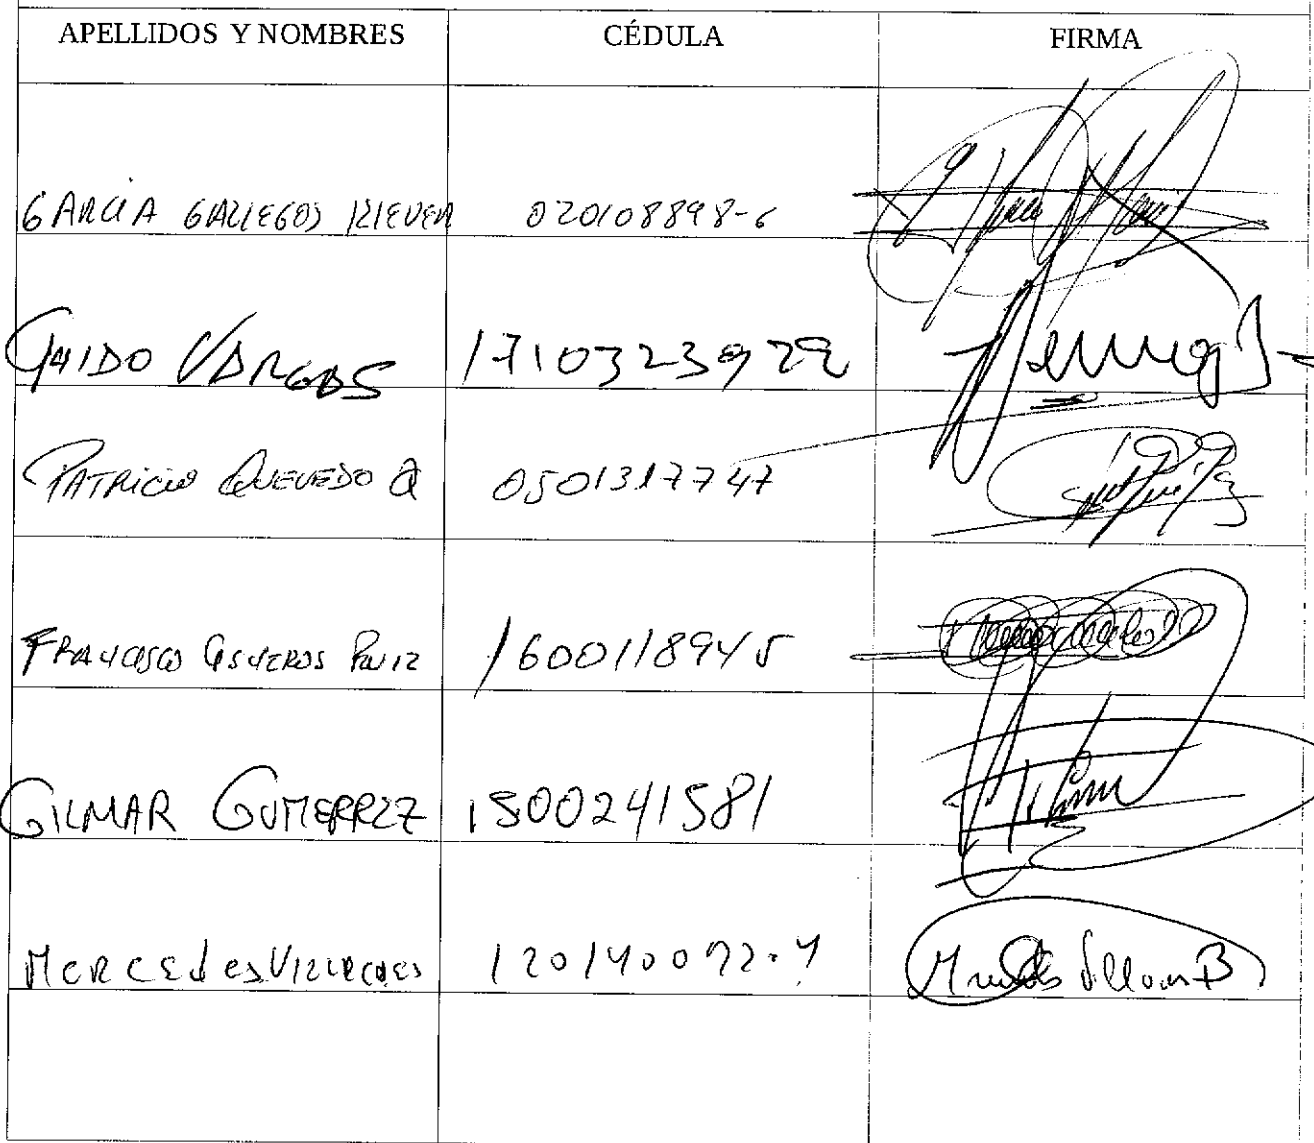 APELLIDOS Y NOMBRES CÉDULA FIRMA
GARCIA GALLEGOS KLEVER 020108898-6
GUIDO VARGAS 1710323922
PATRICIO QUEVEDO Q 0501317747
FRANCISCO CISNEROS RUIZ 1600118945
GILMAR GUTIERREZ 1500241581
MERCEDES 120140072-4